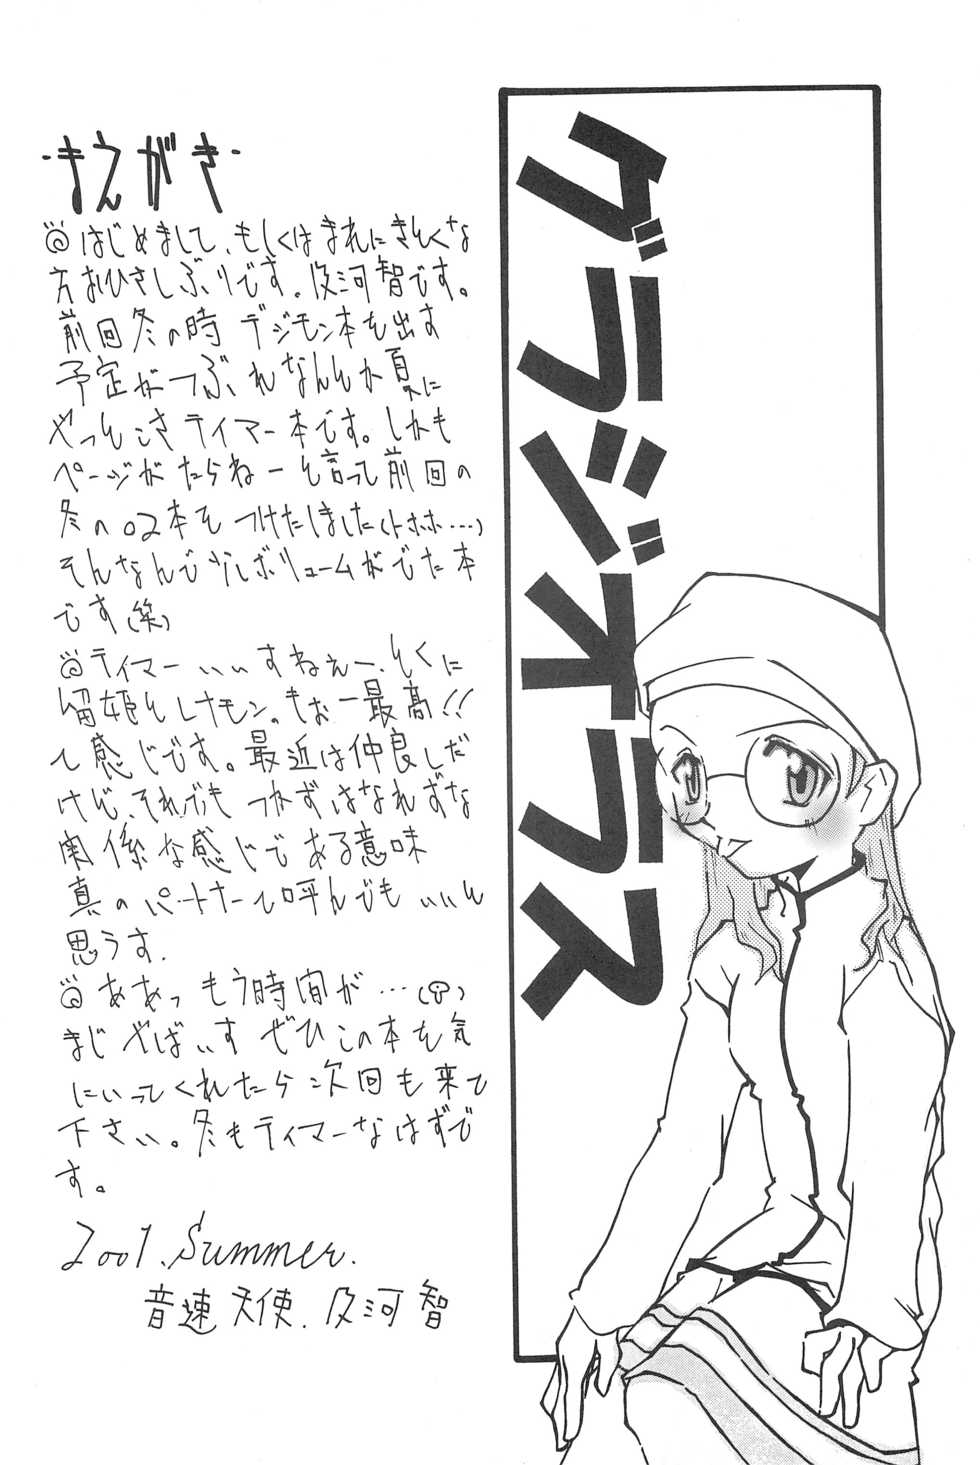 グラジオラス
・まえがき・
◎はじめまして、もしくはまれにきとくな
方おひさしぶりです。及河智です。
前回冬の時 デジモン本を出す
予定がつぶれなんとか夏に
やっとこさテイマー本です。しかも
ページがたらねーと言って前回の
冬の02本をつけたしました(トホホ…)
そんなんで少しボリュームがでた本
です(笑)
◎テイマーいいすねぇー、とくに
留姫とレナモン。もぉー最高!!
て感じです。最近は仲良しだ
けど、それでもつかずはなれずな
関係な感じである意味
真のパートナーて呼んでもいいと
思うす.
◎ああっもう時間が…
まじやばいす ぜひこの本を気
にいってくれたら次回も来て
下さい。冬もテイマーなはずで
す。
2001. Summer.
音速天使. 及河智